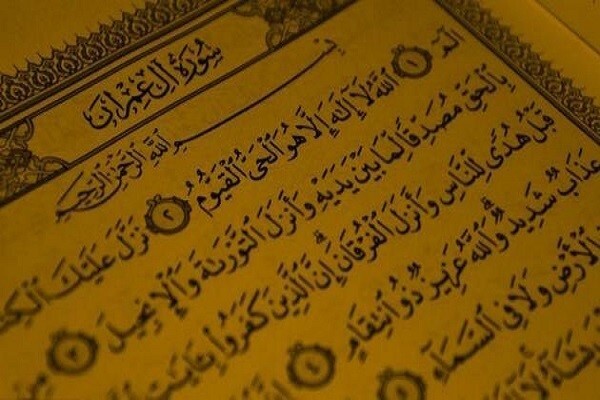 سُورَةُ آلِ عِمْرَانَ
بِسْمِ ٱللَّهِ ٱلرَّحْمَٰنِ ٱلرَّحِيمِ
الٓمٓ ١ ٱللَّهُ لَآ إِلَٰهَ إِلَّا هُوَ ٱلْحَىُّ ٱلْقَيُّومُ ٢ نَزَّلَ عَلَيْكَ
بِٱلْحَقِّ مُصَدِّقًا لِّمَا بَيْنَ يَدَيْهِ وَأَنزَلَ ٱلتَّوْرَىٰةَ وَٱلْإِنجِيلَ ٣ مِن
قَبْلُ هُدًى لِّلنَّاسِ وَأَنزَلَ ٱلْفُرْقَانَ ۗ إِنَّ ٱلَّذِينَ كَفَرُوا۟ بِـَٔايَٰتِ
عَذَابٌ شَدِيدٌ ۗ وَٱللَّهُ عَزِيزٌ ذُو ٱنتِقَامٍ ٤
ٱلْأَرْضِ وَلَا فِى ٱلسَّمَآءِ ٥
يَشَآءُ ۚ لَآ